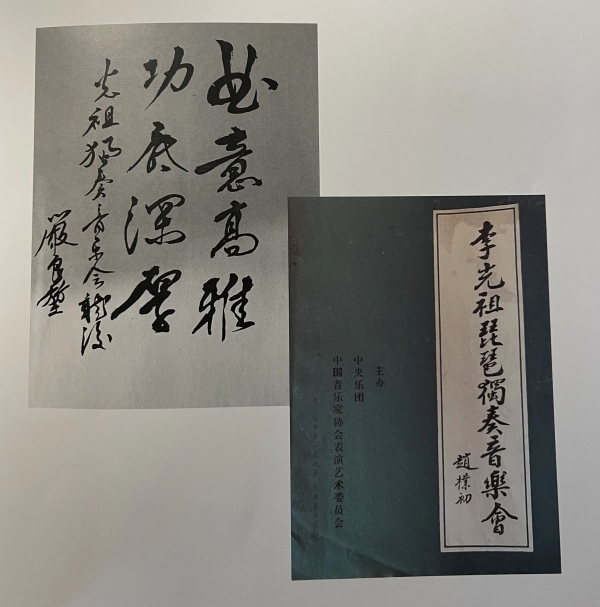 曲意高雅
功底深厚
光祖独奏音乐会听后
严良堃
李光祖琵琶獨奏音樂會
趙樸初
主办
中央乐团
中国音乐家协会表演艺术委员会